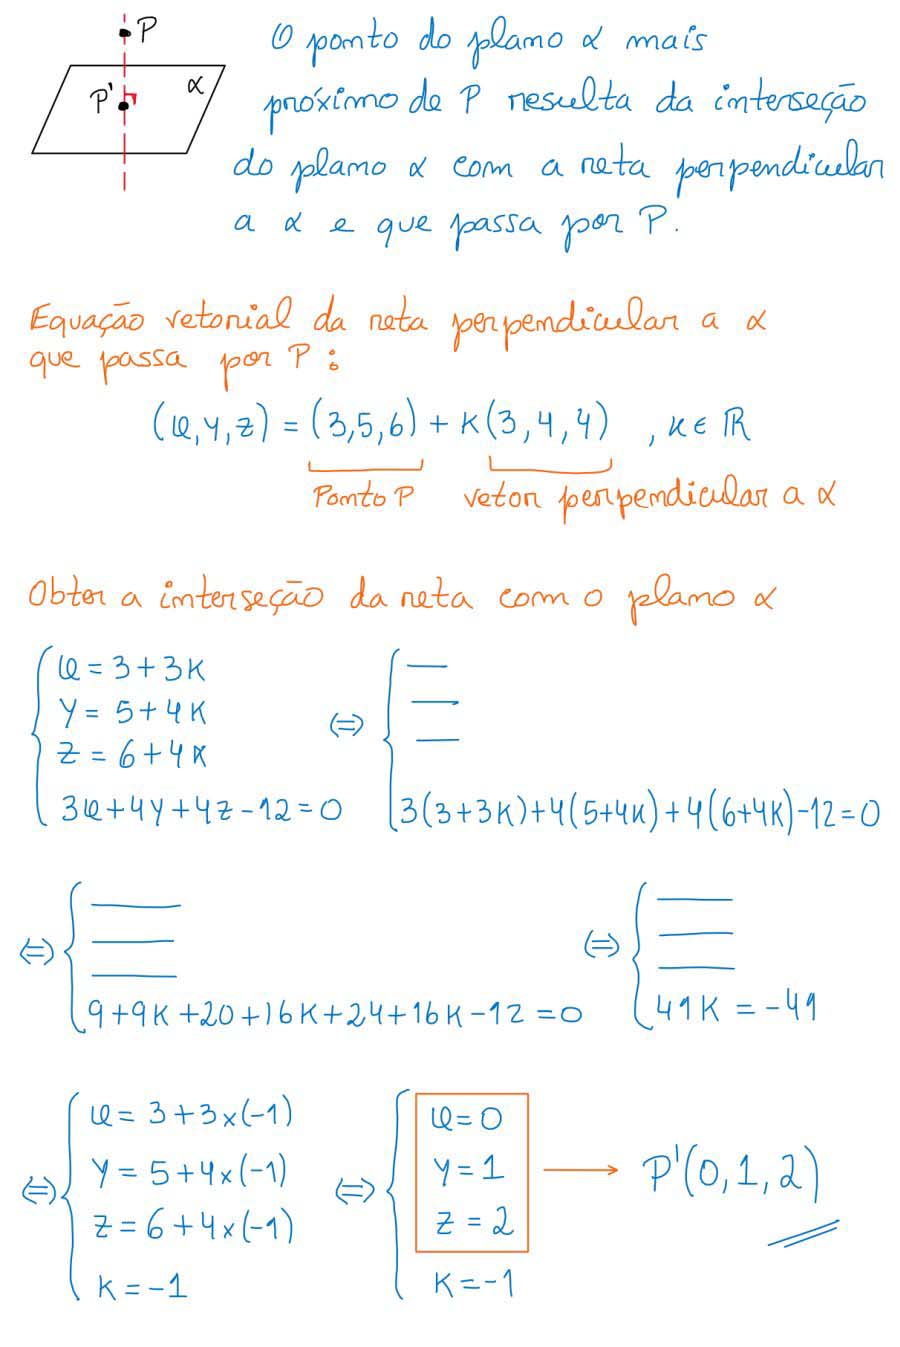 P
P'
α
O ponto do plano α mais
próximo de P resulta da interseção
do plano α com a reta perpendicular
a α e que passa por P.
Equação vetorial da reta perpendicular a α
que passa por P:
(x,y,z) = (3,5,6) + K(3,4,4) , K ∈ ℝ
Ponto P vetor perpendicular a α
Obter a interseção da reta com o plano α
{ x = 3 + 3K
y = 5 + 4K
z = 6 + 4K
3x+4y+4z-12=0
⇔ { —
—
—
3(3+3K)+4(5+4K)+4(6+4K)-12=0
⇔ { —
—
—
9+9K+20+16K+24+16K-12=0
⇔ { —
—
—
41K = -41
⇔ { x = 3+3×(-1)
y = 5+4×(-1)
z = 6+4×(-1)
K = -1
⇔ { x=0
y=1
z=2
K=-1
→ P'(0,1,2)